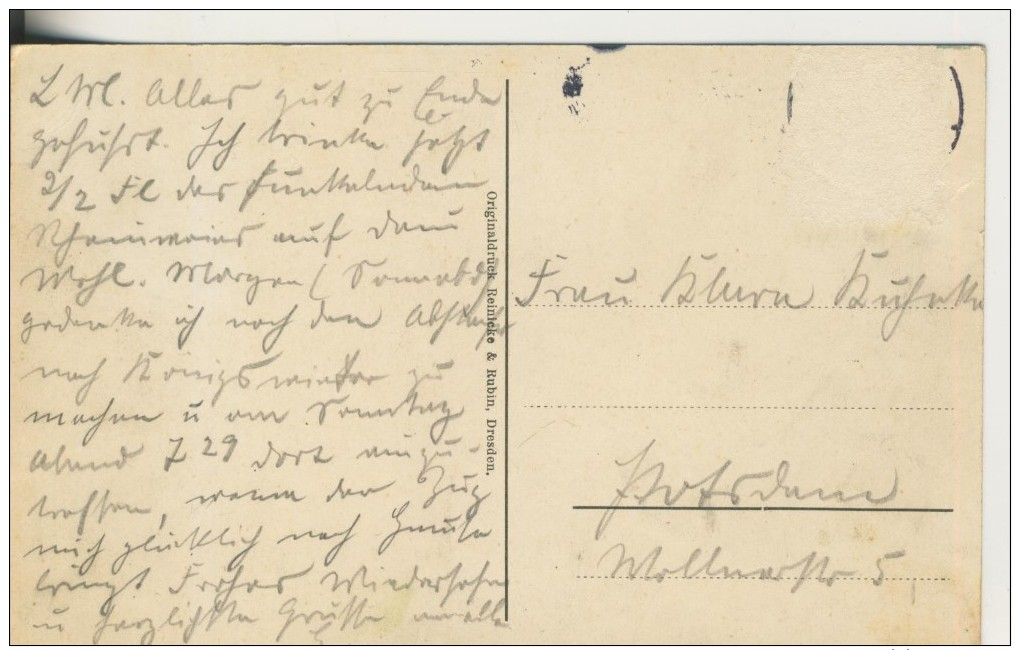 L Ml. Alles gut zu Ende
geführt. Ich trinke jetzt
1/2 Fl des funkelnden
Rheinweins auf dein
Wohl. Morgen (Sonnabd)
gedenke ich noch den Abstecher
nach Königswinter zu
machen u am Sonntag
Abend 7 29 dort einzu-
treffen, wenn der Zug
mich glücklich nach Hause
bringt Frohes Wiedersehen
u herzlichste Grüsse an alle
Originaldruck Reinicke & Rubin, Dresden.
Frau Klara Kuhnke
Potsdam
Wollnerstr 5